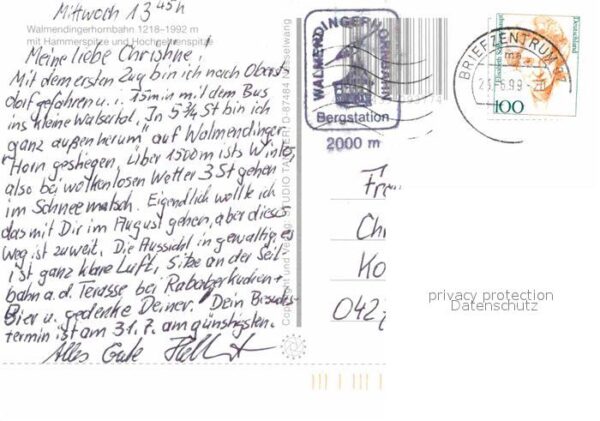 Mittwoch 13 45h
Walmendingerhornbahn 1218–1992 m
mit Hammerspitze und Hochgehrenspitze
Meine liebe Christine!
Mit dem ersten Zug bin ich nach Oberst
dorf gefahren u. i. 15min mit dem Bus
ins kleine Walsertal. In 5 3/4 St bin ich
"ganz außen herum" auf Walmendinger
Horn gestiegen. Über 1500m ists Winter,
also bei wolkenlosen Wetter 3 St gehen
im Schneematsch. Eigendlich wollte ich
das mit Dir im August gehen, aber dieser
Weg ist zu weit. Die Aussicht ist gewaltig, es
ist ganz klare Luft. Sitze an der Seil
bahn a.d. Terasse bei
Bier u. gedenke Deiner. Dein Besuchs
termin ist am 31.7. am günstigsten.
Alles Gute
Copyright und Verlag STUDIO TANNER, D-87484 Nesselwang
WALMENDINGERHORNBAHN
Bergstation
2000 m
BRIEFZENTRUM 87
100
Deutschland
Fra
Chr
Ko
042
privacy protection
Datenschutz